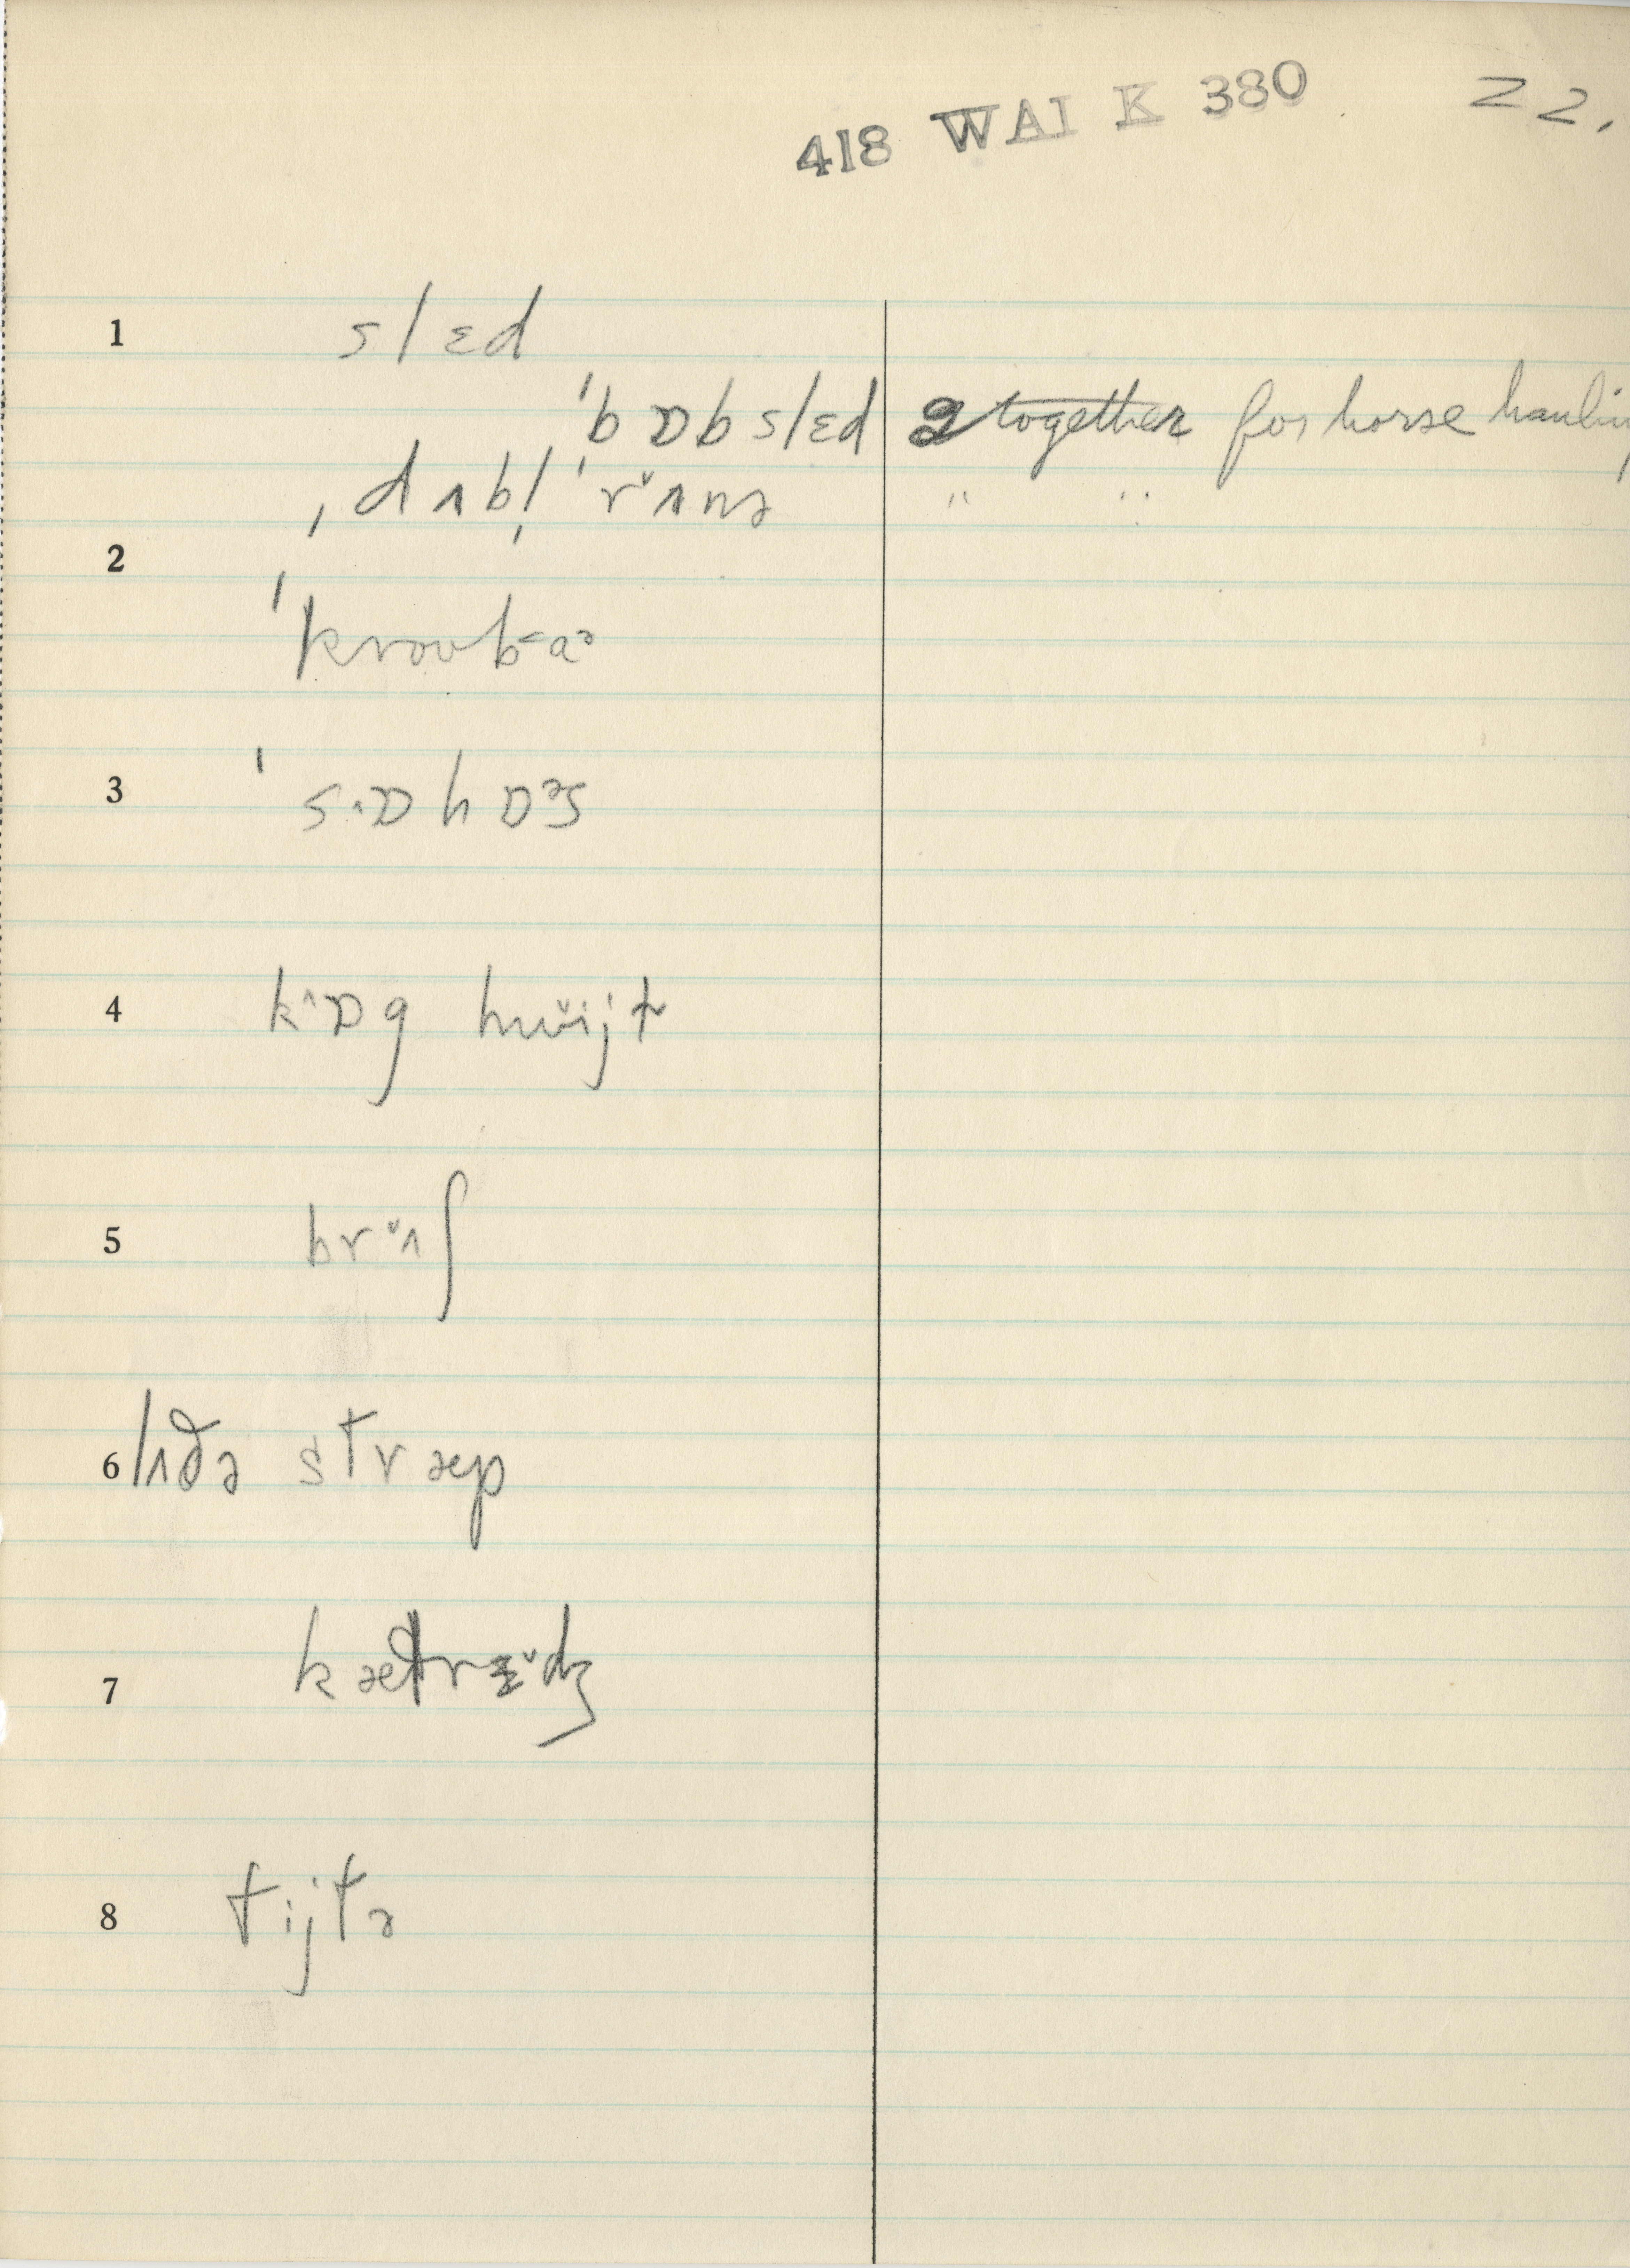 418 WAI K 380 22.
1 slɛd
ˈbɒbslɛd 2 together for horse hauling
ˌdʌbl̩ ˈr˅ʌnə " "
2 ˈkroʊb˂aᵊ
3 ˈs˄ɒhɒᵊs
4 k˄ɒg hw˅ijt
5 br˅ʌʃ
6 lʌðə stræp
7 kætrɛ˅dʒ
8 tijtə